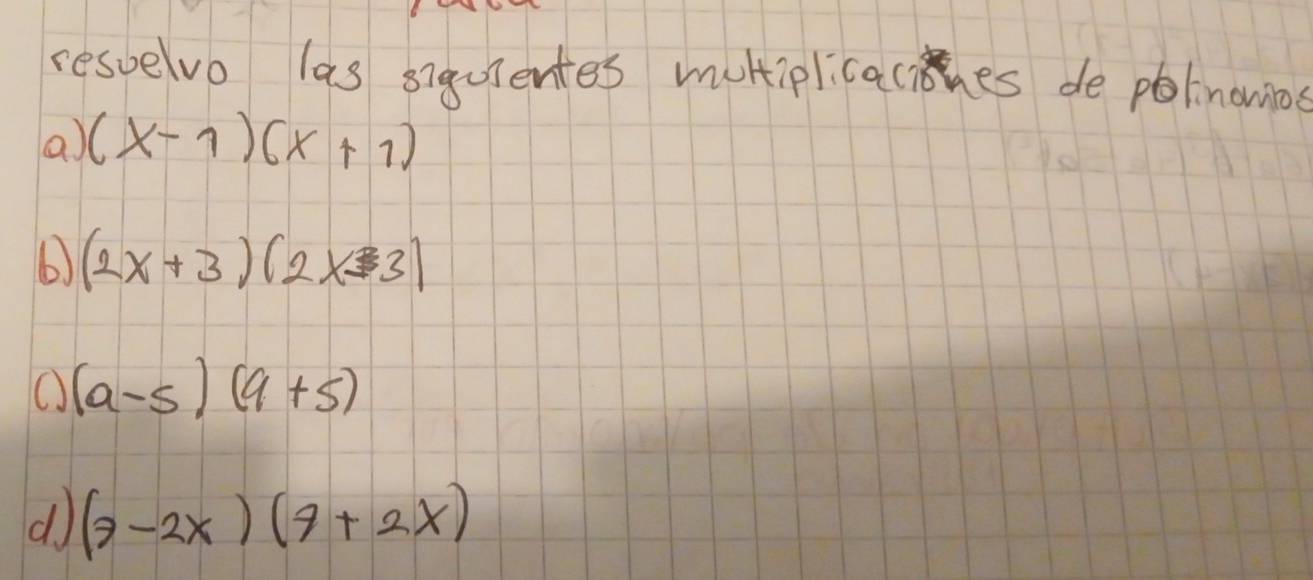 resuelvo las siguientes multiplicaciones de polinomios
a) (x-1)(x+1)
b) (2x+3)(2x-3)
c) (a-5) (a+5)
d) (7-2x) (7+2x)